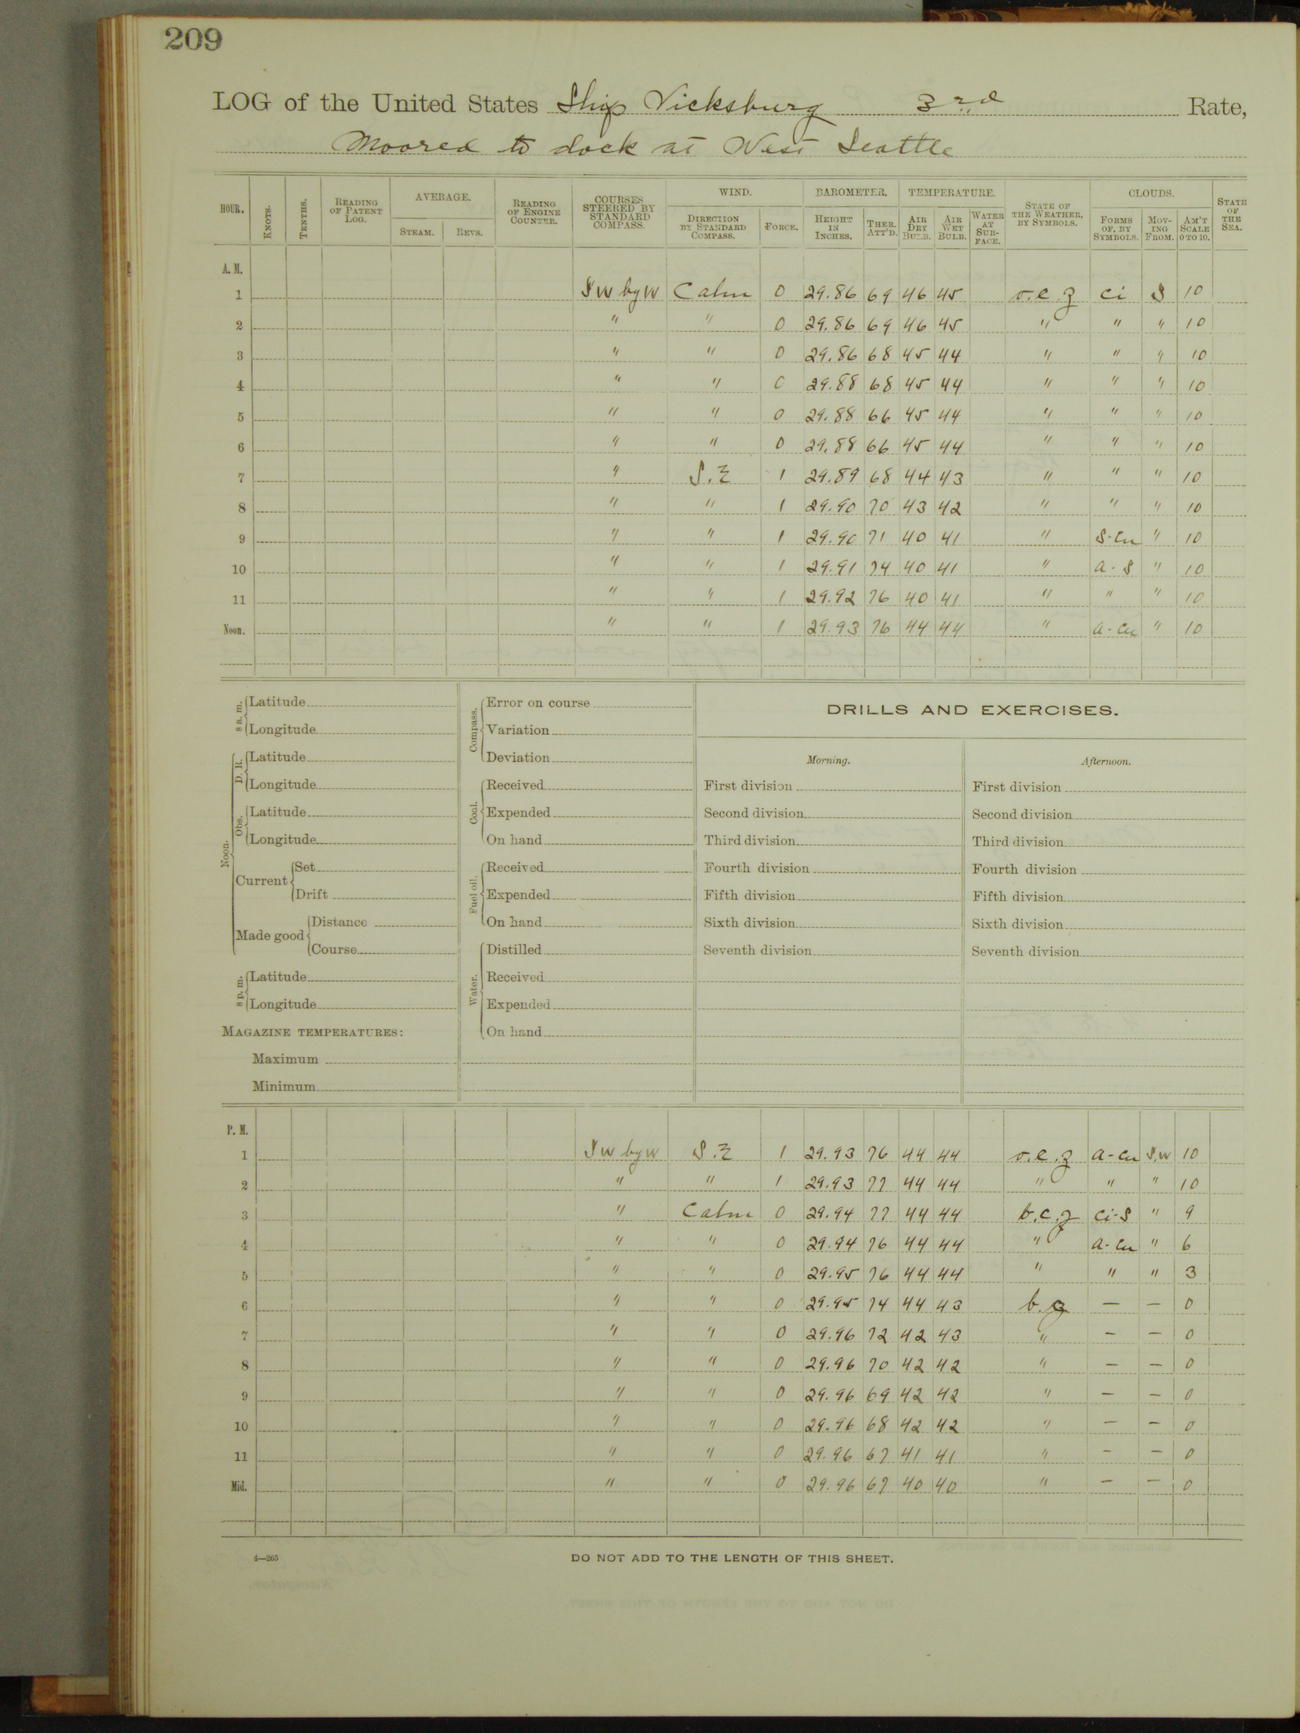 209
LOG of the United States Ship Vicksburg 3rd Rate,
Moored to dock at West Seattle
HOUR. KNOTS. TENTHS. READING OF PATENT LOG. AVERAGE. STEAM. REVS. READING OF ENGINE COUNTER. COURSES STEERED BY STANDARD COMPASS. WIND. DIRECTION BY STANDARD COMPASS. FORCE. BAROMETER. HEIGHT IN INCHES. THER. ATT'D. TEMPERATURE. AIR DRY BULB. AIR WET BULB. WATER AT SURFACE. STATE OF THE WEATHER, BY SYMBOLS. CLOUDS. FORMS OF, BY SYMBOLS. MOVING FROM. AM'T SCALE 0 TO 10. STATE OF THE SEA.
A. M.
1 SW by W Calm 0 29.86 69 46 45 o.c.z ci S 10
2 " " 0 29.86 69 46 45 " " " 10
3 " " 0 29.86 68 45 44 " " " 10
4 " " 0 29.88 68 45 44 " " " 10
5 " " 0 29.88 66 45 44 " " " 10
6 " " 0 29.88 66 45 44 " " " 10
7 " S.E 1 29.89 68 44 43 " " " 10
8 " " 1 29.90 70 43 42 " " " 10
9 " " 1 29.90 71 40 41 " S-cu " 10
10 " " 1 29.91 74 40 41 " a-s " 10
11 " " 1 29.92 76 40 41 " " " 10
Noon. " " 1 29.93 76 44 44 " a-cu " 10
8 a. m. Latitude
Longitude
Noon. D. R. Latitude
Longitude
Obs. Latitude
Longitude
Current Set
Drift
Made good Distance
Course
8 p. m. Latitude
Longitude
MAGAZINE TEMPERATURES:
Maximum
Minimum
Compass. Error on course
Variation
Deviation
Coal. Received
Expended
On hand
Fuel oil. Received
Expended
On hand
Water. Distilled
Received
Expended
On hand
DRILLS AND EXERCISES.
Morning. Afternoon.
First division First division
Second division Second division
Third division Third division
Fourth division Fourth division
Fifth division Fifth division
Sixth division Sixth division
Seventh division Seventh division
P. M.
1 SW by W S.E 1 29.93 76 44 44 o.c.z a-cu S.W 10
2 " " 1 29.93 77 44 44 " " " 10
3 " Calm 0 29.94 77 44 44 b.c.z ci-s " 9
4 " " 0 29.94 76 44 44 " a-cu " 6
5 " " 0 29.95 76 44 44 " " " 3
6 " " 0 29.95 74 44 43 b.z — — 0
7 " " 0 29.96 72 42 43 " — — 0
8 " " 0 29.96 70 42 42 " — — 0
9 " " 0 29.96 69 42 42 " — — 0
10 " " 0 29.96 68 42 42 " — — 0
11 " " 0 29.96 67 41 41 " — — 0
Mid. " " 0 29.96 67 40 40 " — — 0
4—265
DO NOT ADD TO THE LENGTH OF THIS SHEET.